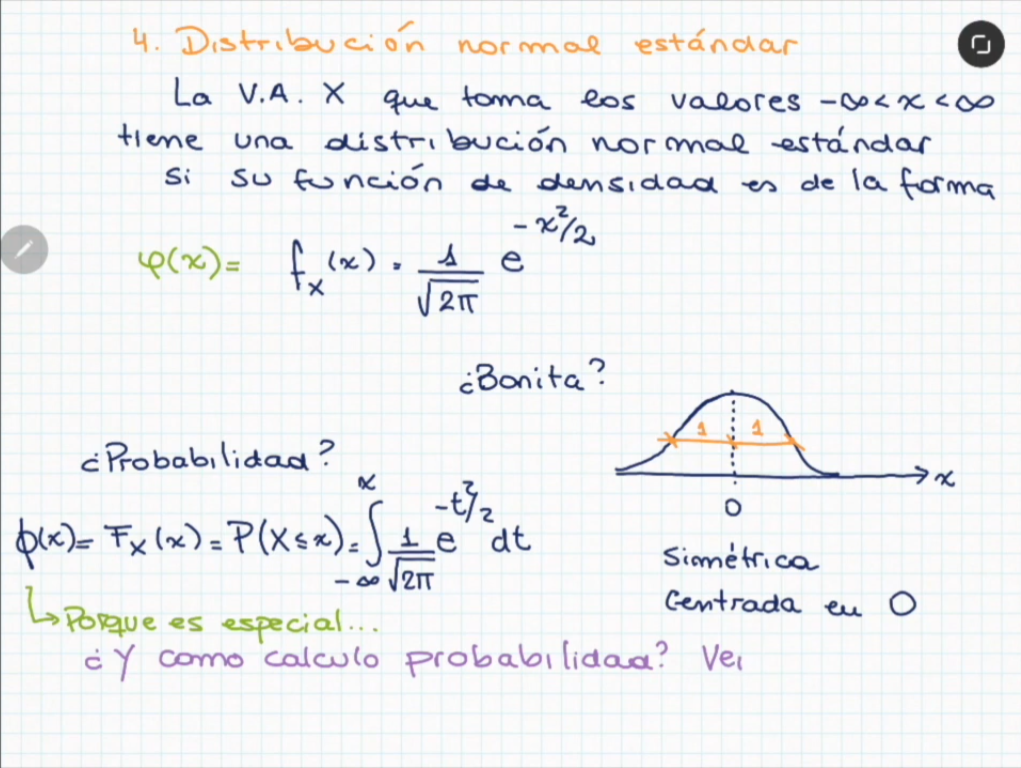 4. Distribución normal estándar
La V.A. X que toma los valores -∞<x<∞
tiene una distribución normal estándar
si su función de densidad es de la forma
φ(x)= f_X(x) = 1/√2π e^(-x²/2)
¿Bonita?
1 1
x
0
¿Probabilidad?
ϕ(x)= F_X(x) = P(X≤x) = ∫_{-∞}^{x} 1/√2π e^(-t²/2) dt
Simétrica
Centrada en 0
↳Porque es especial...
¿Y como calculo probabilidad? Ver